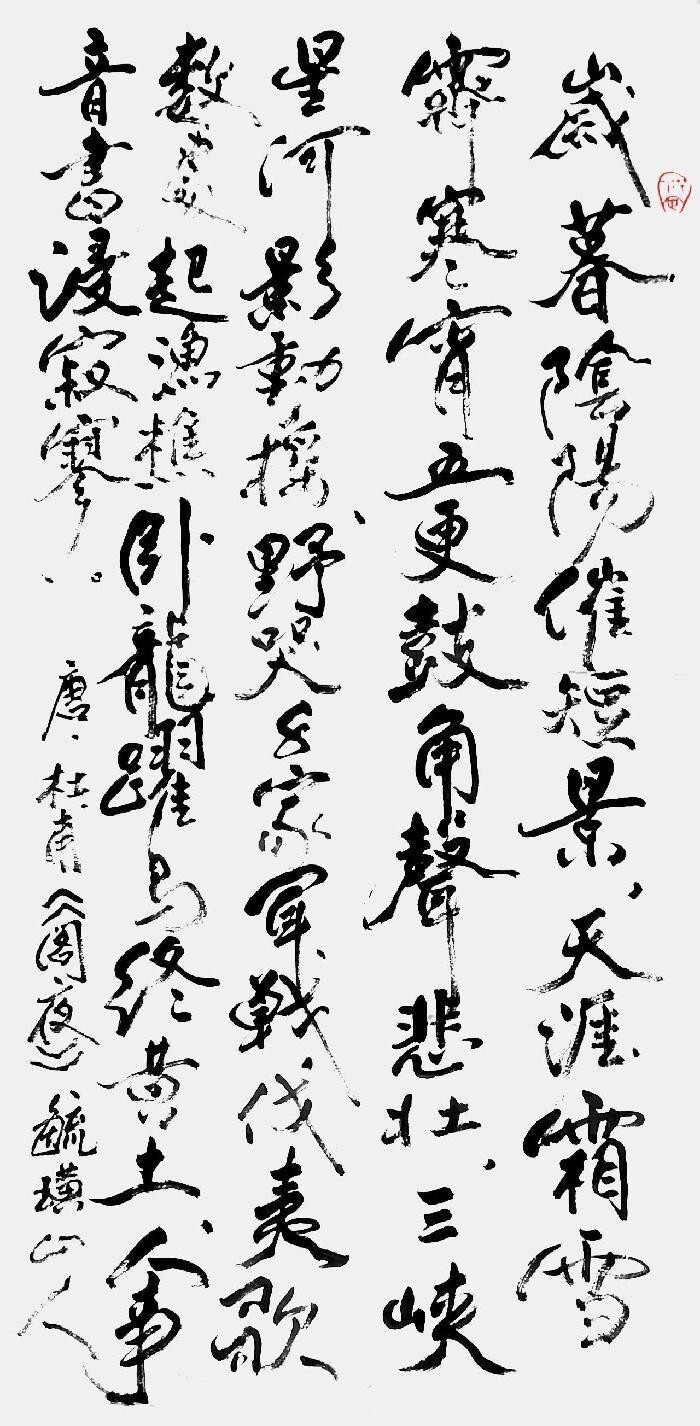 歲暮陰陽催短景，天涯霜雪
霽寒宵五更鼓角聲悲壯，三峽
星河影動搖，野哭千家聞戰伐夷歌
數處起漁樵卧龍躍馬終黃土，人事
音書漫寂寥…。唐、杜甫《閣夜》毓璜山人